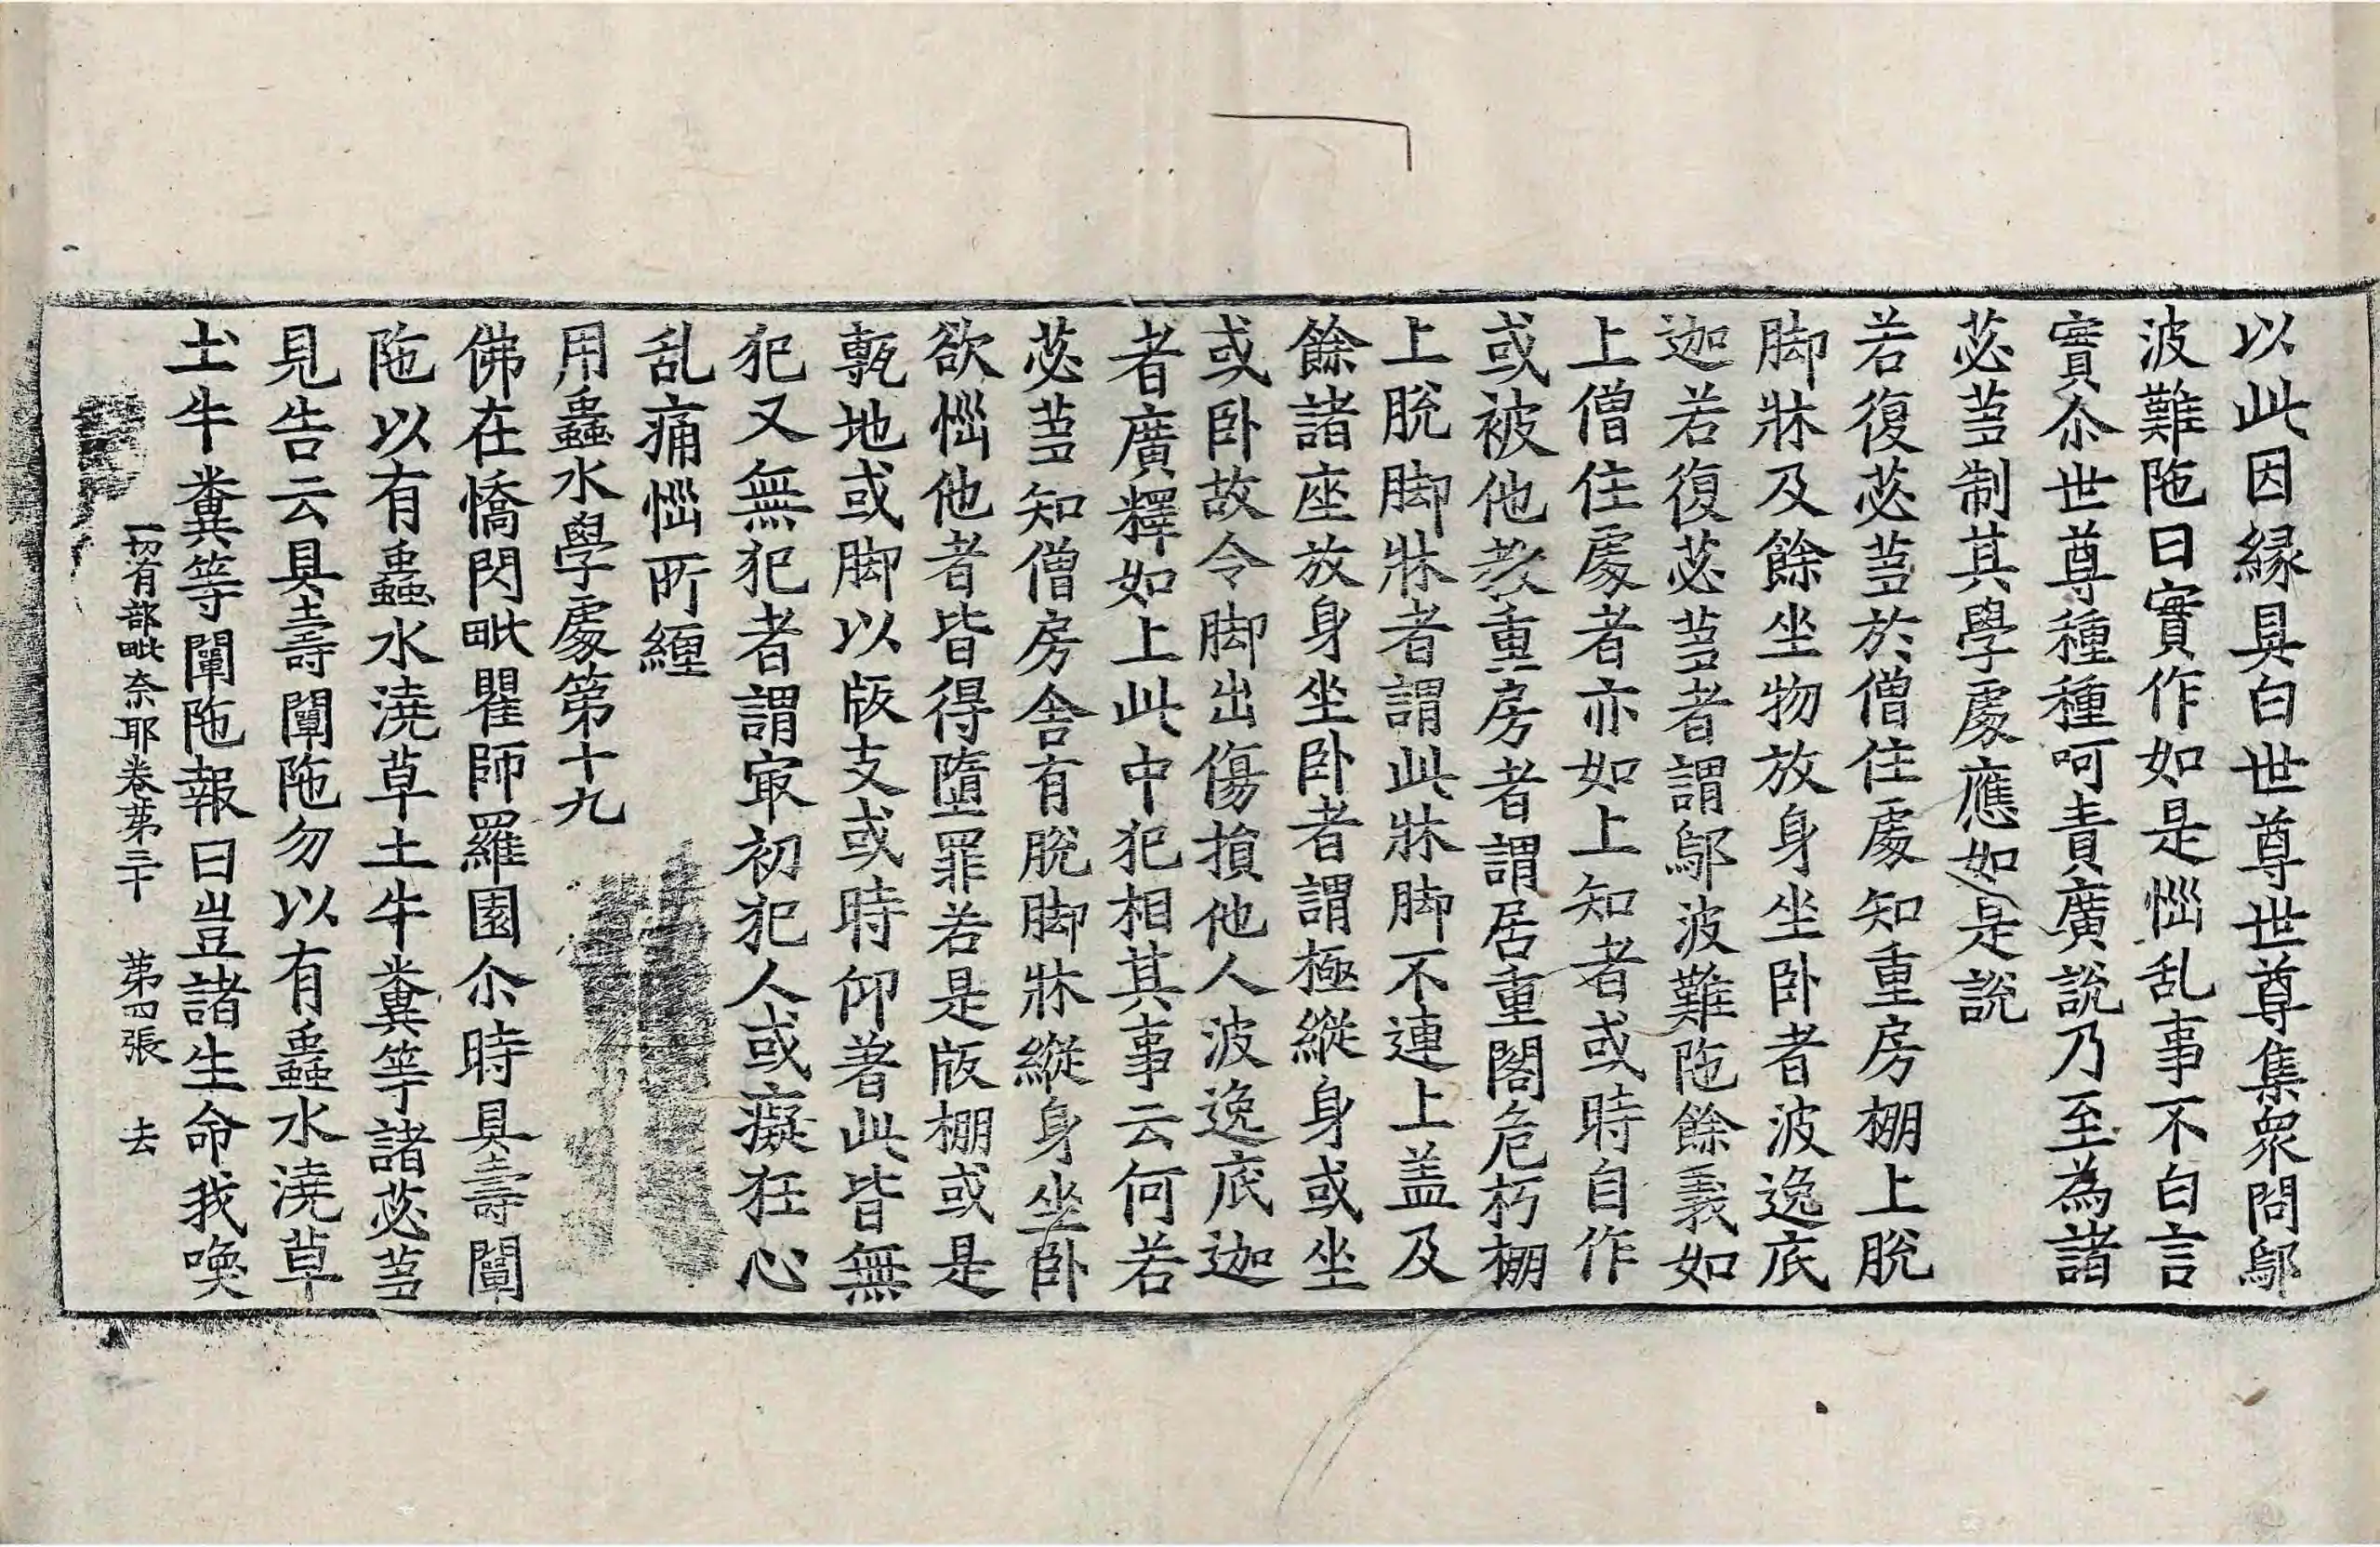 以此因縁具白世尊世尊集衆問鄔
波難陁曰實作如是惱乱事不白言
實尒世尊種種呵責廣說乃至為諸
苾芻制其學處應如是說
若復苾芻於僧住處知重房棚上脫
脚牀及餘坐物放身坐卧者波逸底
迦若復苾芻者謂鄔波難陁餘義如
上僧住處者亦如上知者或時自作
或被他教重房者謂居重閣危朽棚
上脫脚牀者謂此牀脚不連上盖及
餘諸座放身坐卧者謂極縱身或坐
或卧故令脚出傷損他人波逸底迦
者廣釋如上此中犯相其事云何若
苾芻知僧房舍有脫脚牀縱身坐卧
欲惱他者皆得墮罪若是版棚或是
甎地或脚以版支或時仰著此皆無
犯又無犯者謂冣初犯人或癡狂心
乱痛惱所纏
用蟲水學處第十九
佛在憍閃毗瞿師羅園尒時具壽闡
陁以有蟲水澆草土牛糞等諸苾芻
見告云具壽闡陁勿以有蟲水澆草
土牛糞等闡陁報曰豈諸生命我喚
一切有部毗奈耶卷第三十 第四張 去